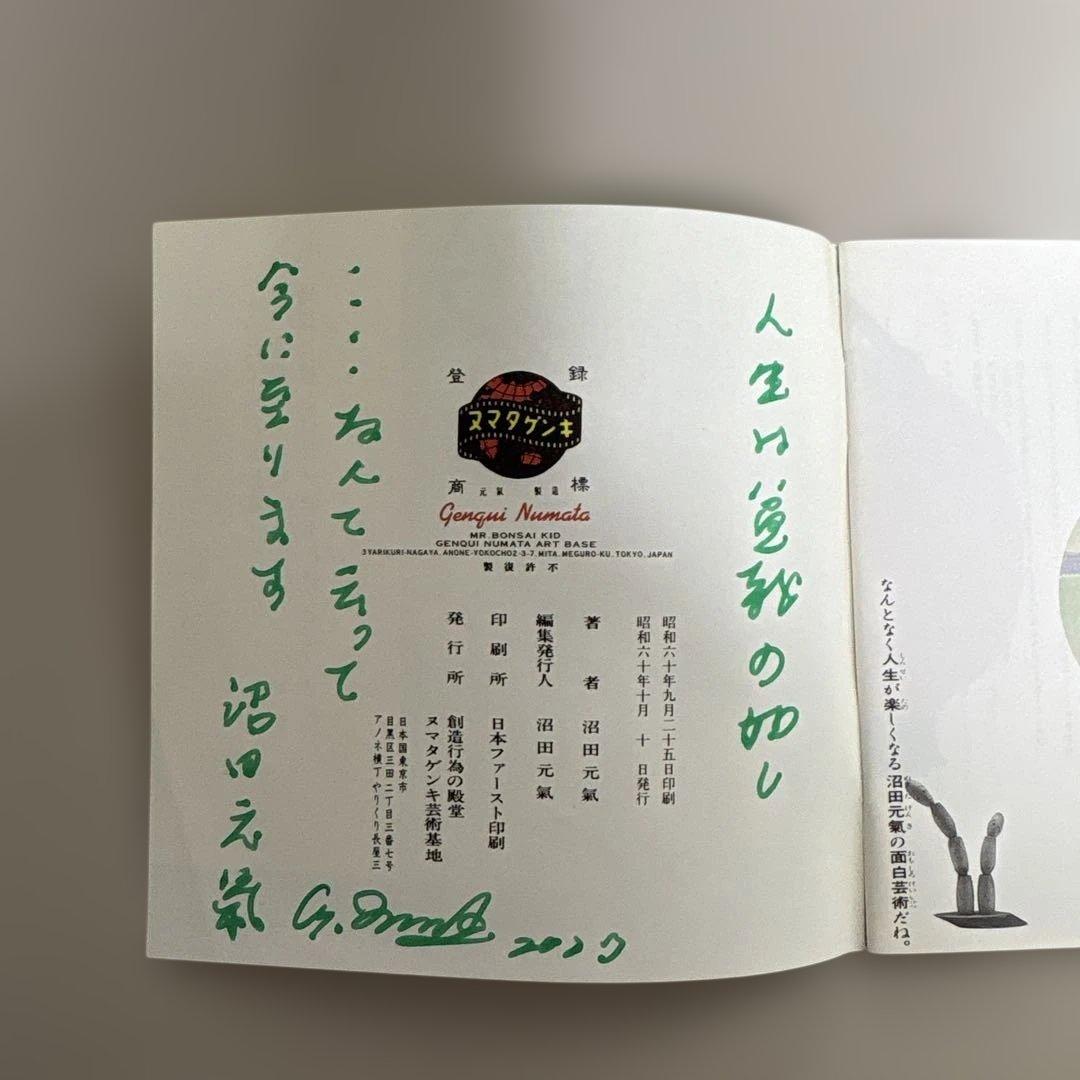 人生は盆栽の如し
・・・・・なんて云って
今に至ります
沼田元氣
G.
登録
ヌマタゲンキ
商標
元氣 製造
Genqui Numata
MR.BONSAI KID
GENQUI NUMATA ART BASE
3 YARIKURI-NAGAYA, ANONE-YOKOCHO2-3-7, MITA, MEGURO-KU, TOKYO, JAPAN
製復許不
昭和六十年九月二十五日印刷
昭和六十年十月 十 日発行
著 者 沼田元氣
編集発行人 沼田元氣
印刷所 日本ファースト印刷
発行所 創造行為の殿堂
ヌマタゲンキ芸術基地
日本国東京市
目黒区三田二丁目三番七号
アノネ横丁やりくり長屋三
なんとなく人生が楽しくなる沼田元氣の面白芸術だね。